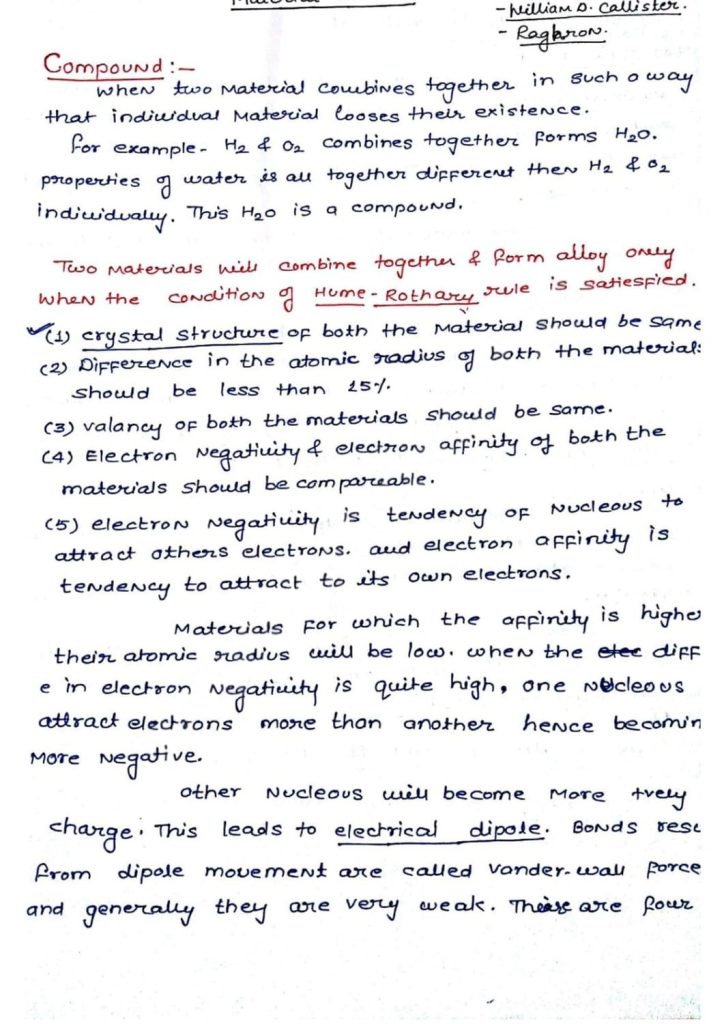 - William D. Callister.
- Raghron.
Compound :-
when two Material combines together in such a way
that individual Material looses their existence.
for example- H2 & O2 combines together forms H2O.
properties of water is all together different then H2 & O2
individually. This H2O is a compound.
Two Materials will combine together & form alloy only
when the condition of Hume-Rothary rule is satiesfied.
(1) crystal structure of both the Material should be same
(2) Difference in the atomic radius of both the materials
should be less than 15%.
(3) valancy of both the materials should be same.
(4) Electron Negativity & electron affinity of both the
materials should be compareable.
(5) electron Negativity is tendency of Nucleous to
attract others electrons. and electron affinity is
tendency to attract to its own electrons.
Materials for which the affinity is highe
their atomic radius will be low. when the elec diff
e in electron Negativity is quite high, one Nucleous
attract electrons more than another hence becomin
More Negative.
other Nucleous will become More +vely
charge. This leads to electrical dipole. Bonds resu
from dipole movement are called vander-wall force
and generally they are very weak. These are four